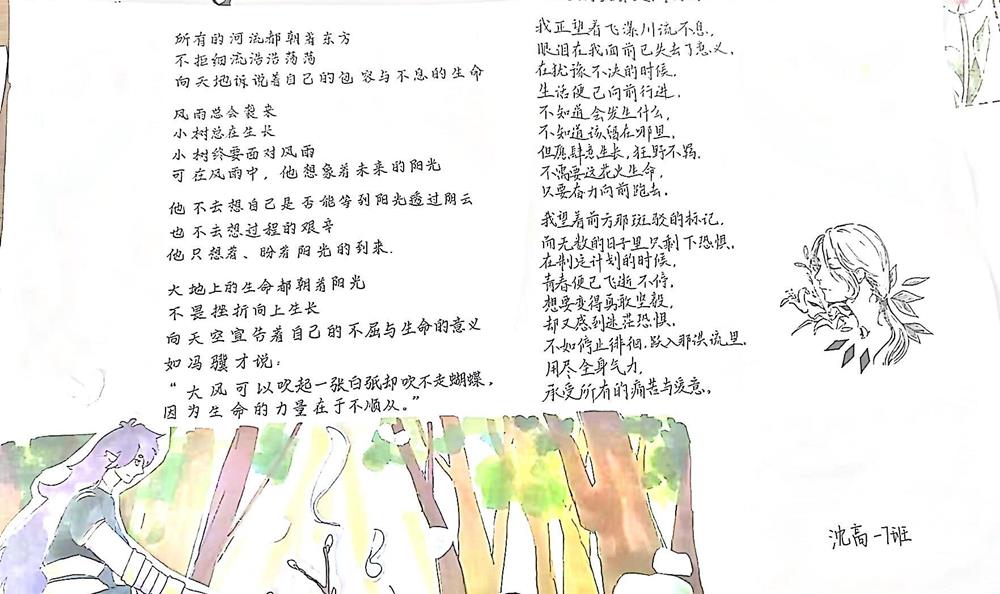 所有的河流都朝着东方
不拒细流浩浩荡荡
向天地诉说着自己的包容与不息的生命
风雨总会袭来
小树总在生长
小树终要面对风雨
可在风雨中，他想象着未来的阳光
他不去想自己是否能等到阳光透过阴云
也不去想过程的艰辛
他只想着、盼着阳光的到来.
大地上的生命都朝着阳光
不畏挫折向上生长
向天空宣告着自己的不屈与生命的意义
如冯骥才说：
“大风可以吹起一张白纸却吹不走蝴蝶，
因为生命的力量在于不顺从。”
我正望着飞瀑川流不息，
眼泪在我面前已失去了意义，
在犹豫不决的时候，
生活便已向前行进，
不知道会发生什么，
不知道该留在哪里，
但愿肆意生长，狂野不羁.
不需要这花火生命，
只要奋力向前跑去.
我望着前方那斑驳的标记，
而无数的日子里只剩下恐惧，
在制定计划的时候，
青春便已飞逝不停，
想要变得勇敢坚毅，
却又感到迷茫恐惧，
不如停止徘徊，跃入那洪流里，
用尽全身气力，
承受所有的痛苦与爱意。
沈高一7班